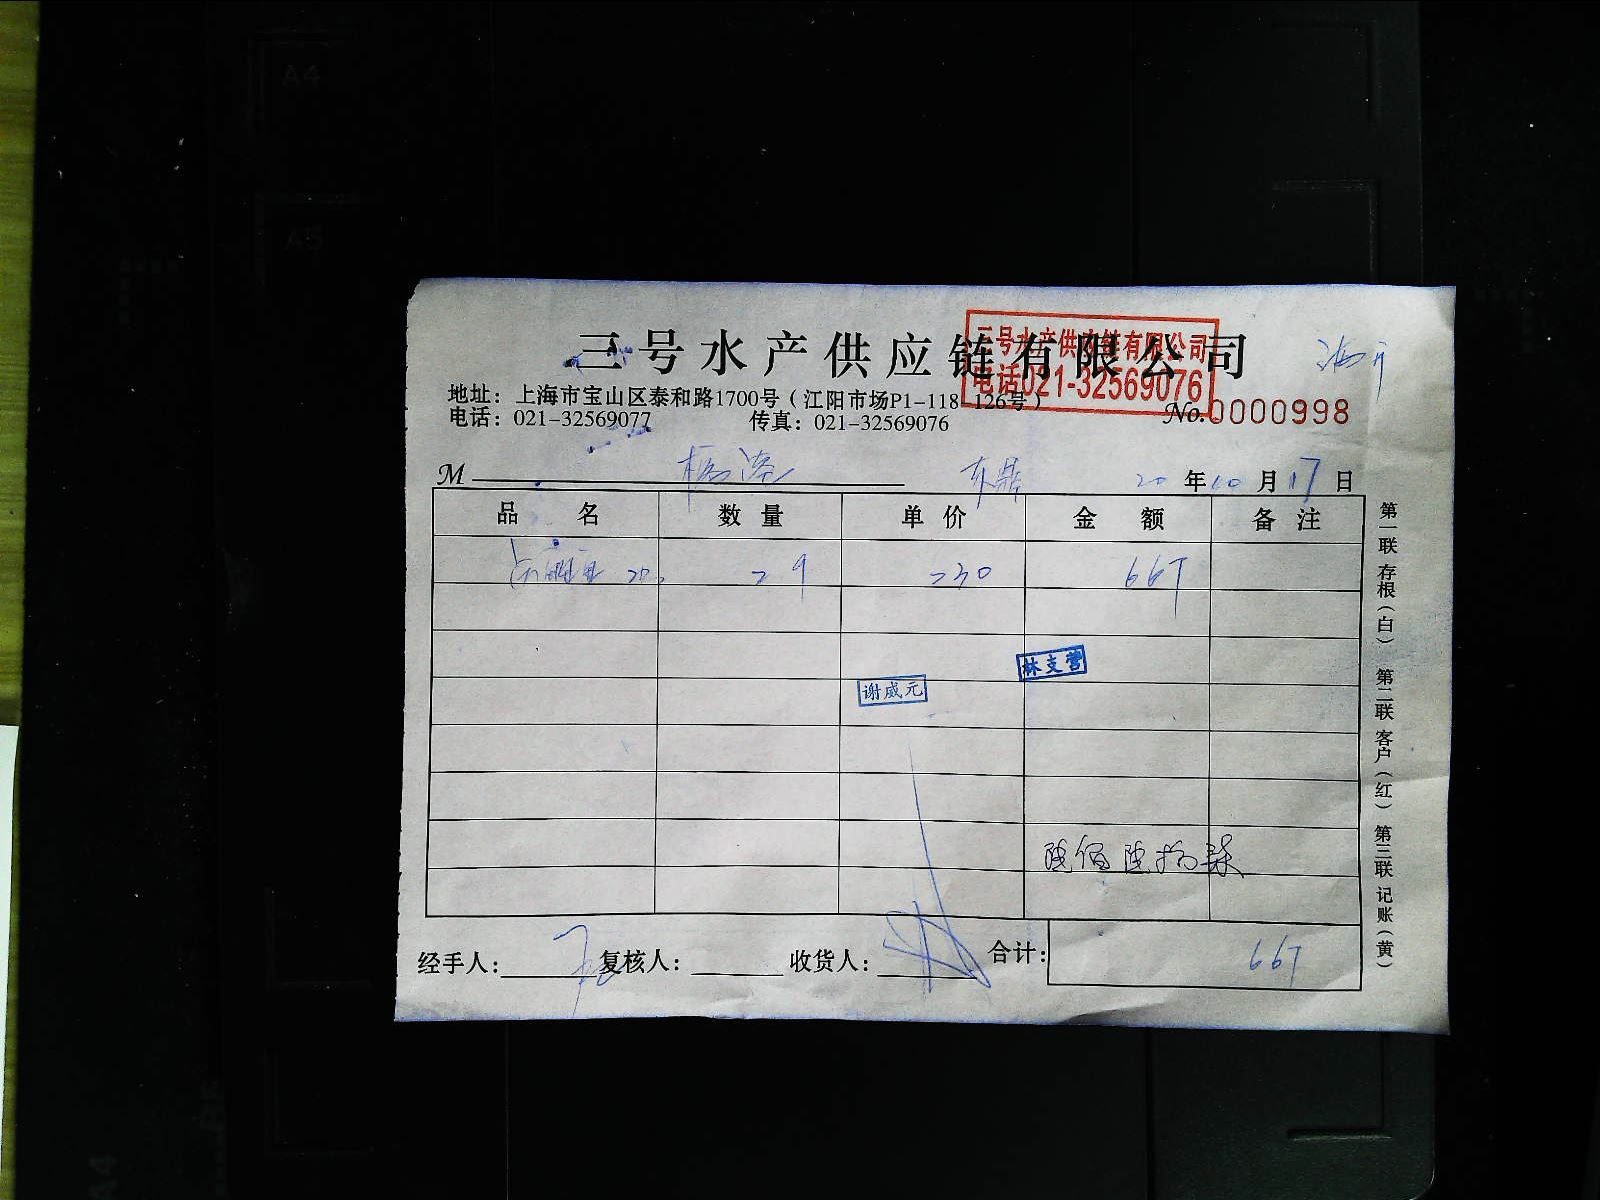 三号水产供应链有限公司
三号水产供应链有限公司
电话021-32569076
地址：上海市宝山区泰和路1700号（江阳市场P1-118-126号）
电话：021-32569077 传真：021-32569076
No.0000998
M 20年10月17日
品名 数量 单价 金额 备注
29 230 667
林支营
谢威元
陆佰陆拾柒
经手人： 复核人： 收货人： 合计： 667
第一联 存根（白） 第二联 客户（红） 第三联 记账（黄）
A4
A5
A4